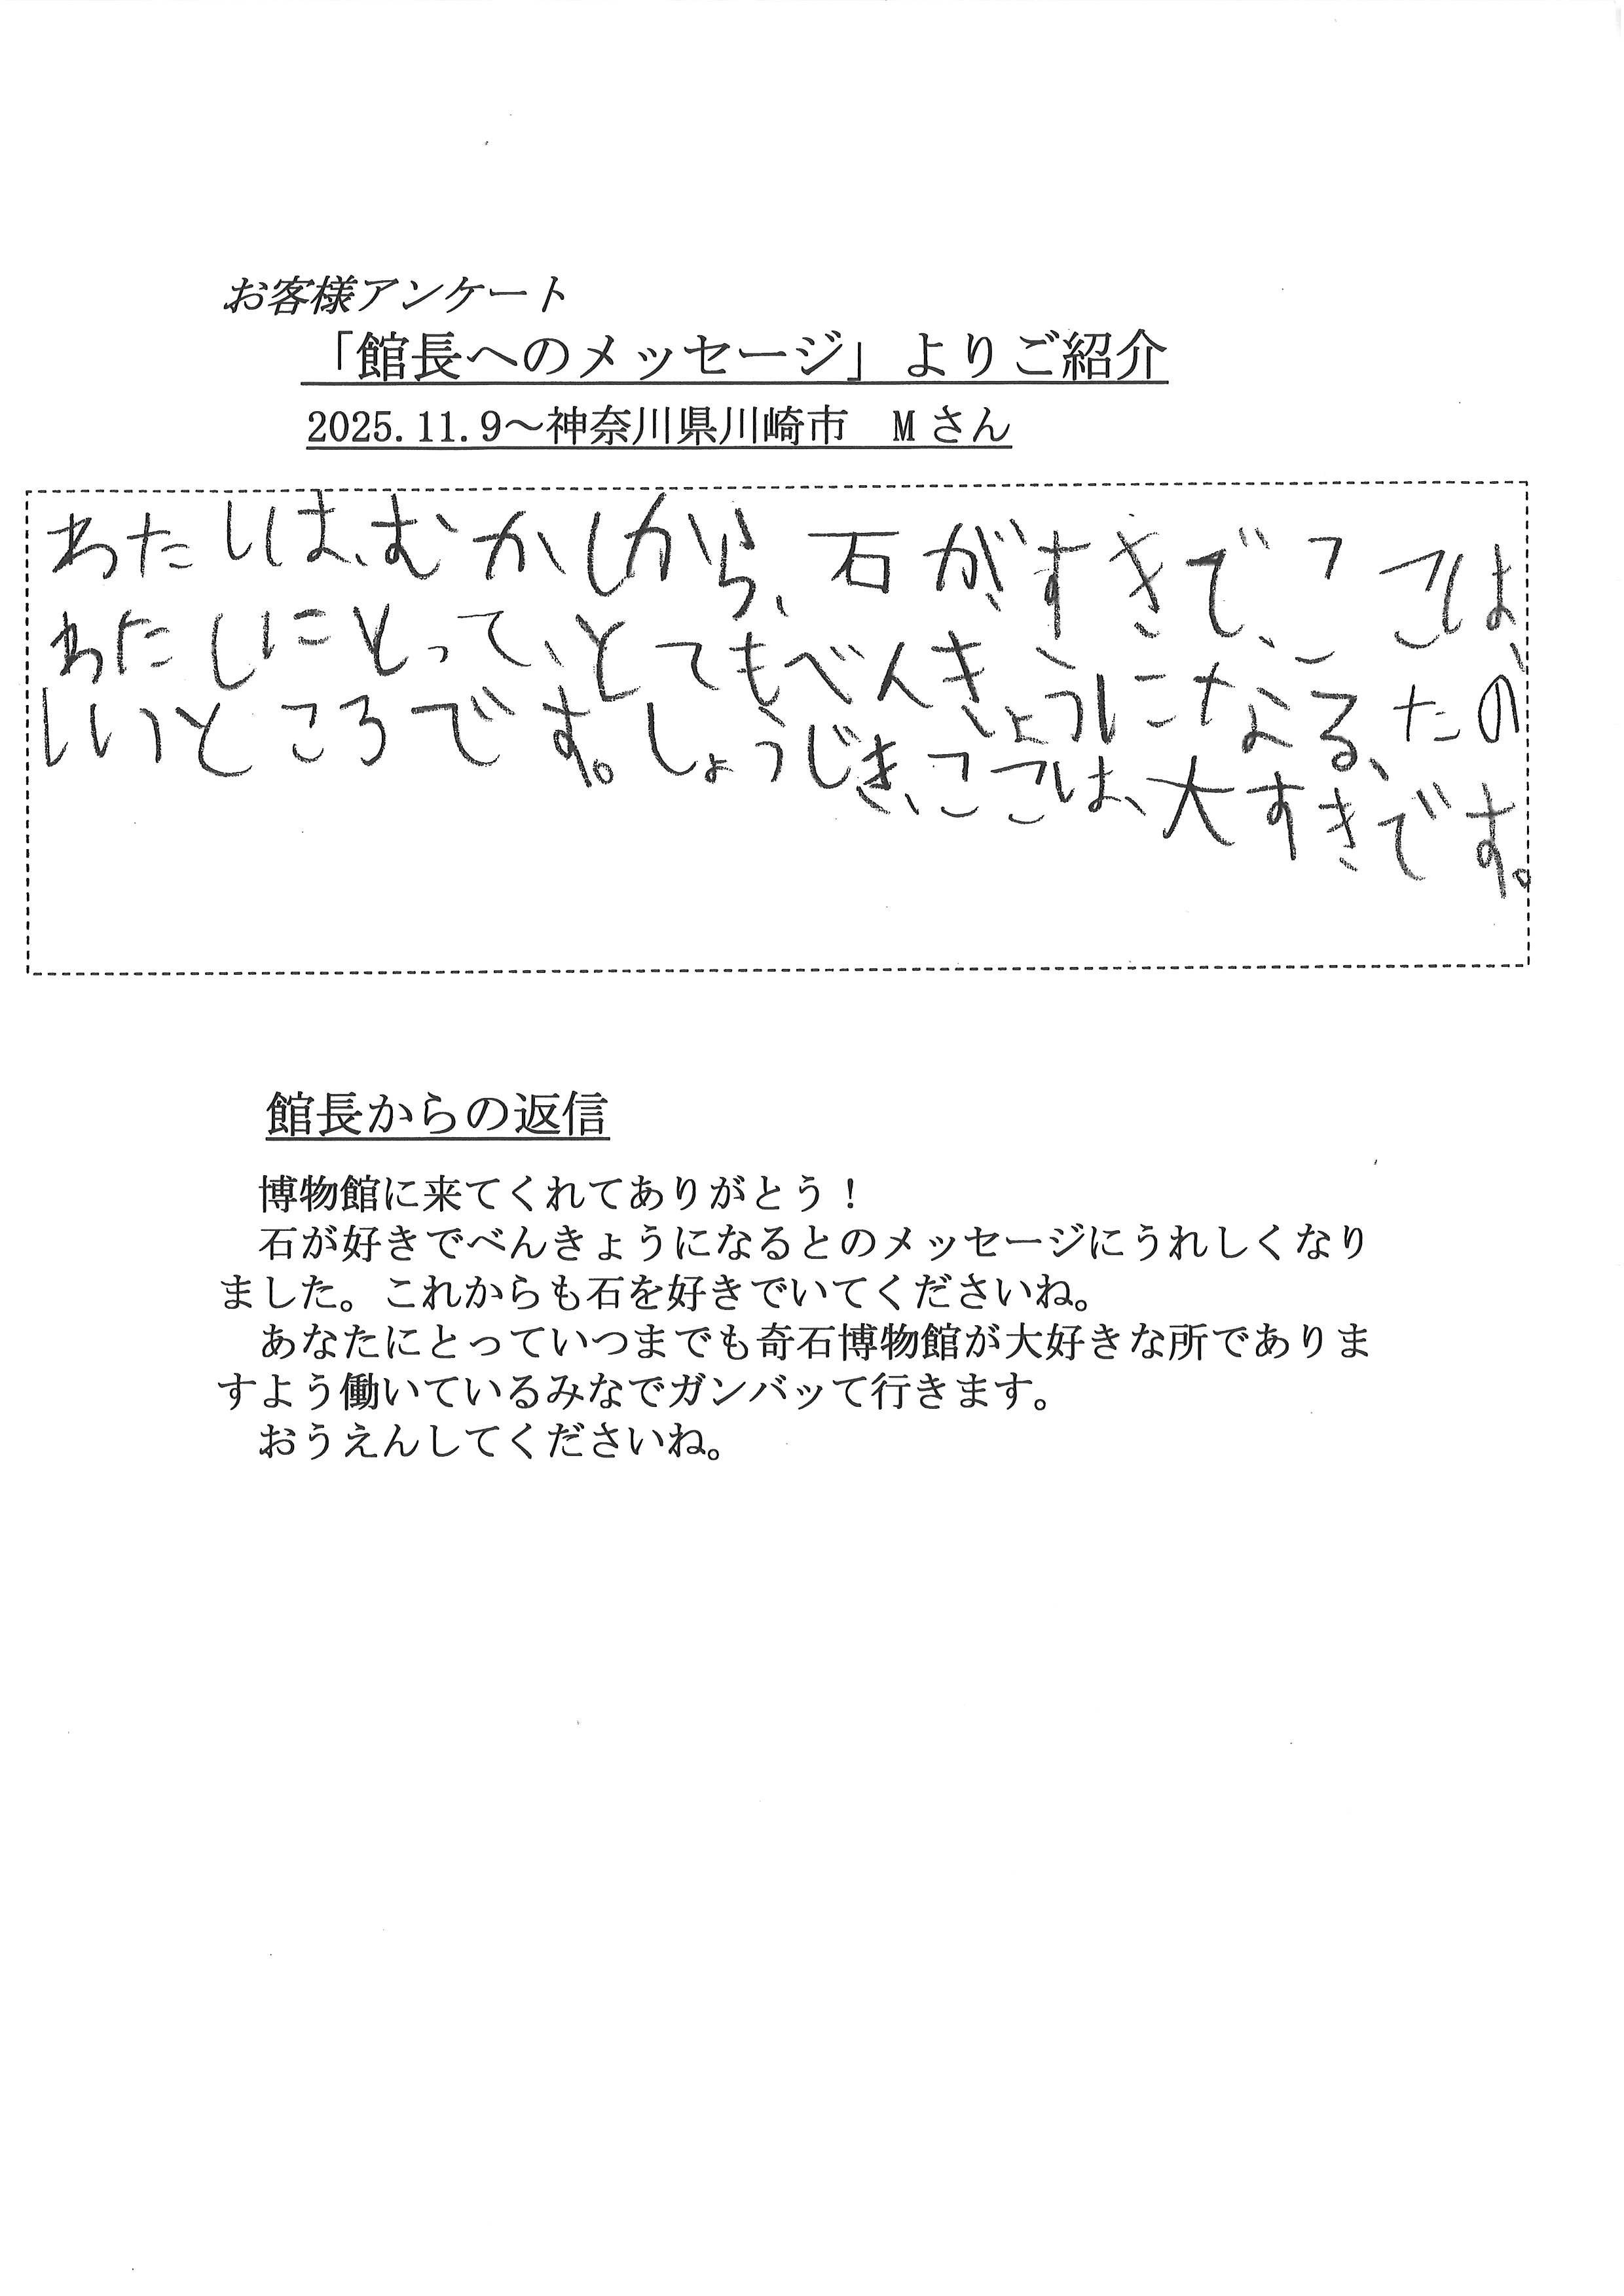 お客様アンケート
「館長へのメッセージ」よりご紹介
2025.11.9～神奈川県川崎市　Mさん
わたしは、むかしから、石が、すきで、ここは、
わたしにとって、とてもべんきょうになる、たの
しいところです。しょうじき、ここは、大すきです。
館長からの返信
博物館に来てくれてありがとう！
石が好きでべんきょうになるとのメッセージにうれしくなり
ました。これからも石を好きでいてくださいね。
あなたにとっていつまでも奇石博物館が大好きな所でありま
すよう働いているみなでガンバッて行きます。
おうえんしてくださいね。